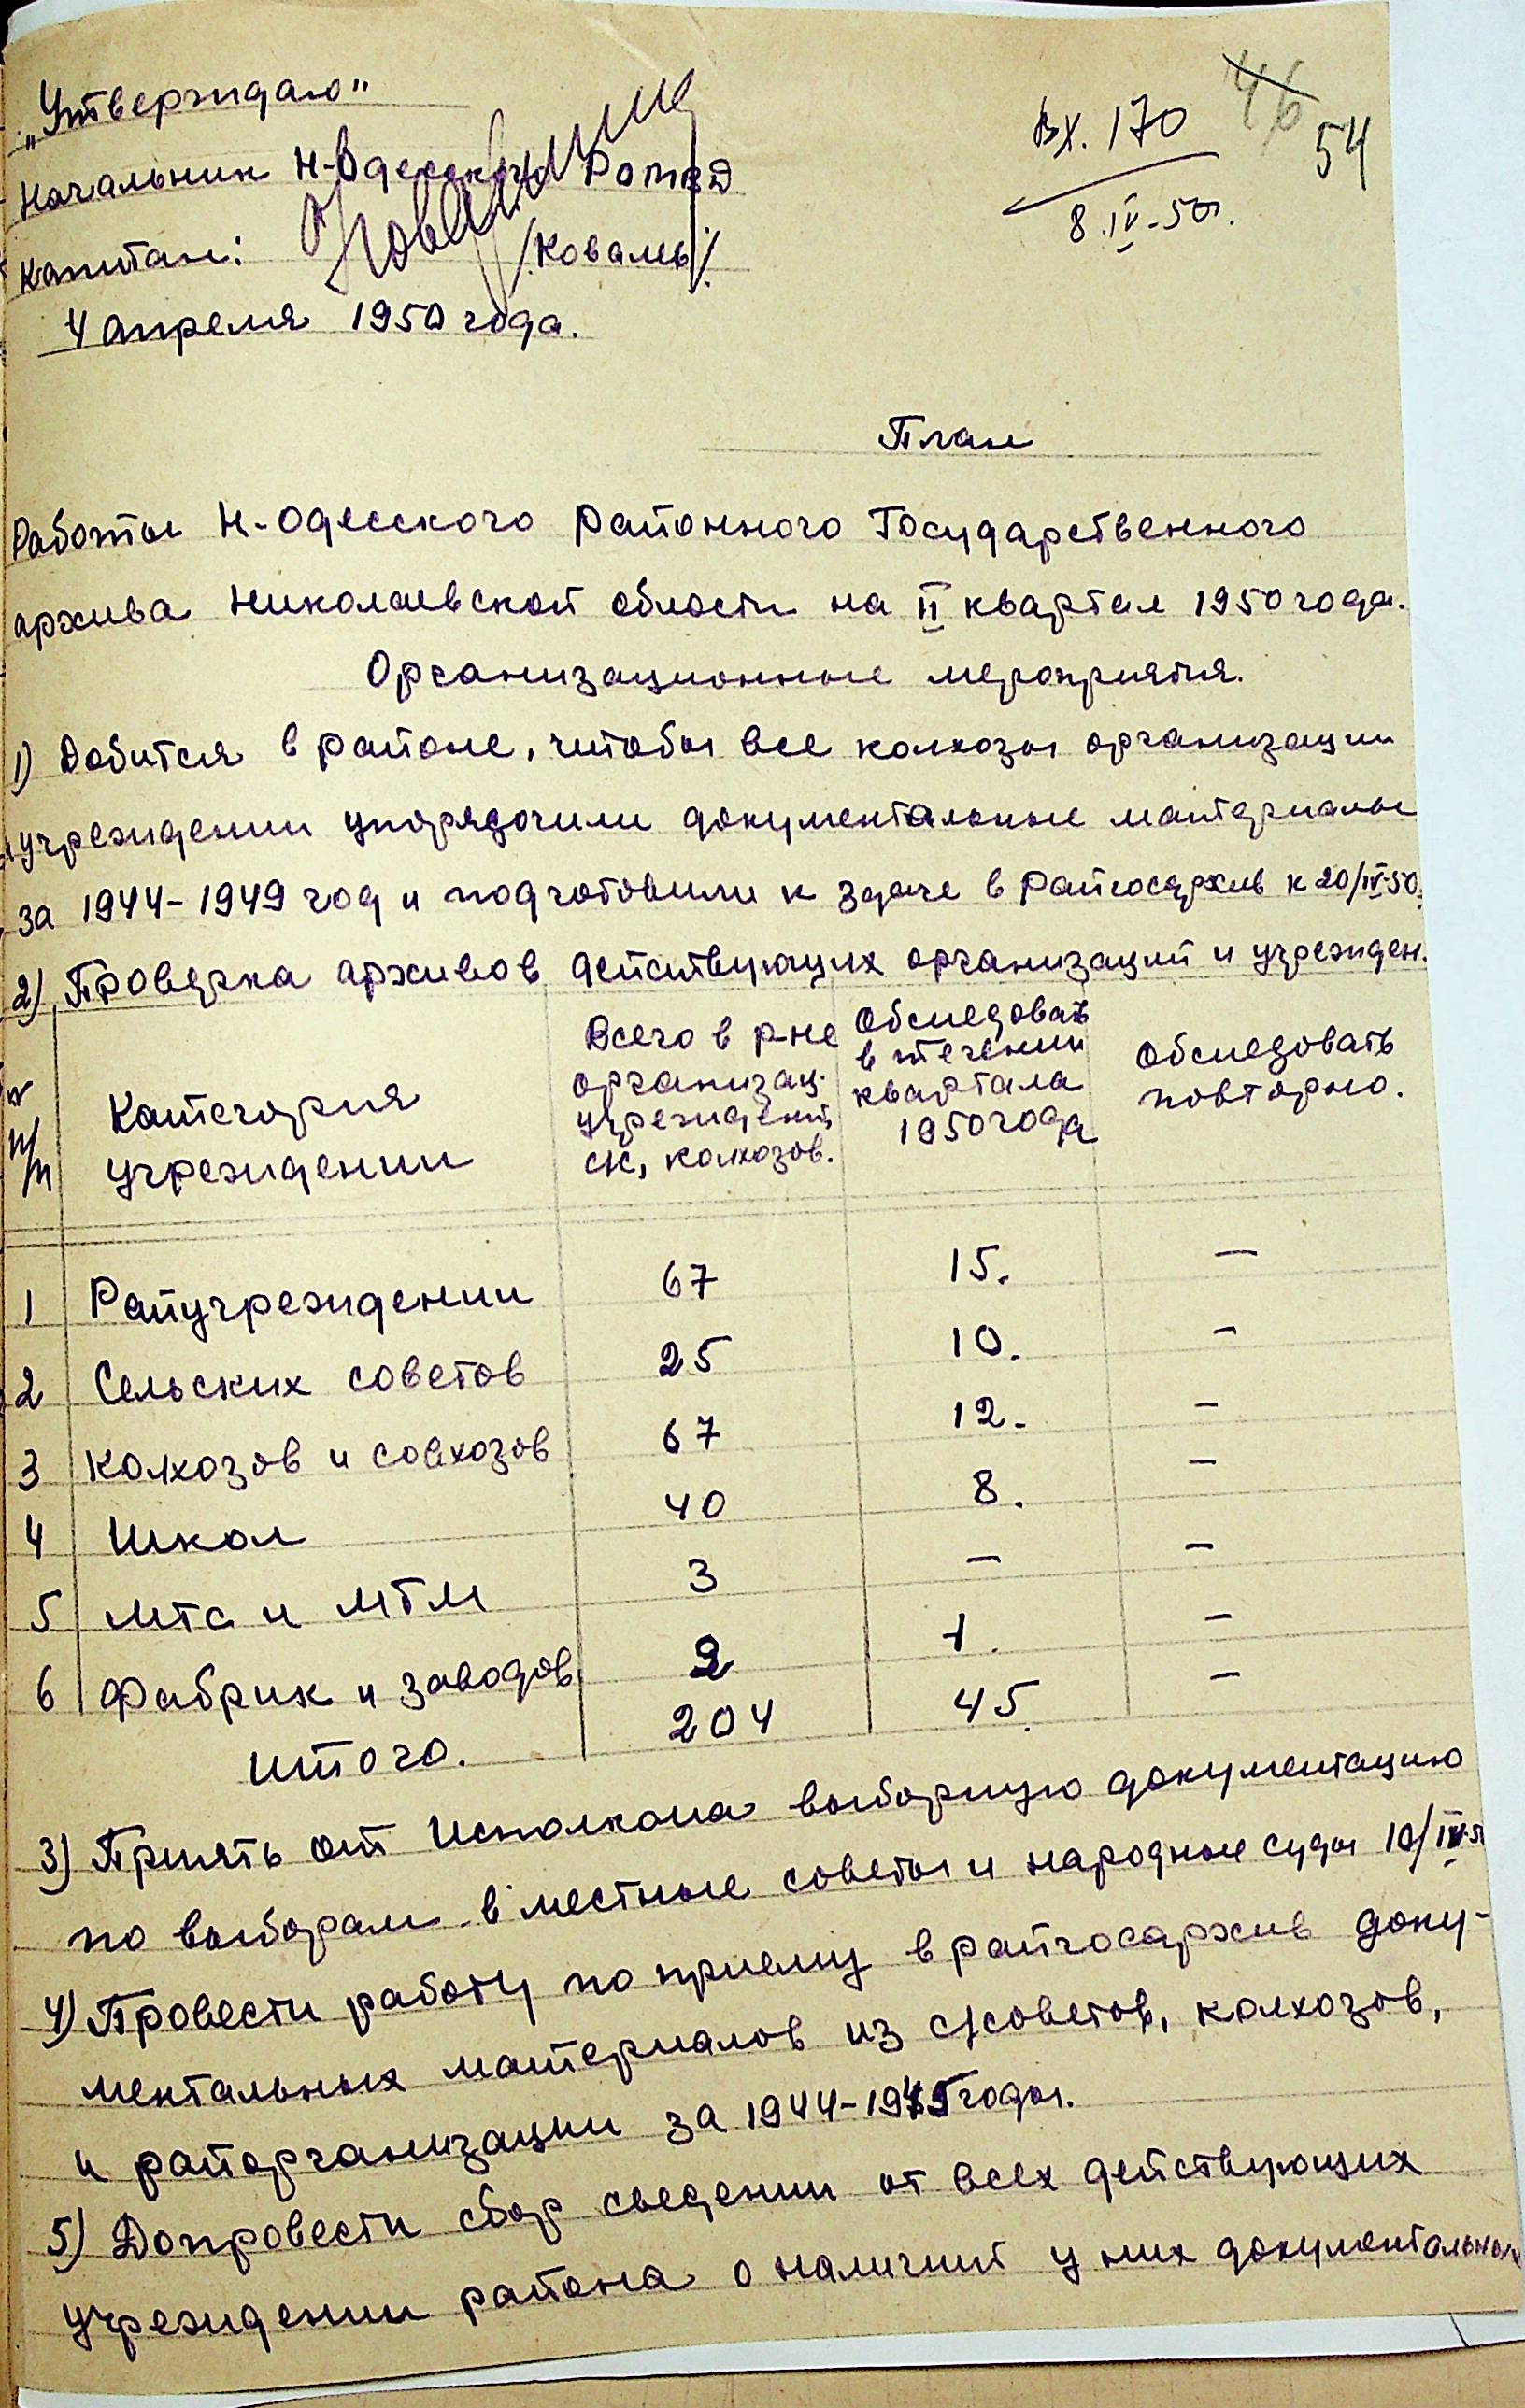 „Утверждаю"
Вх. 170
46
54
Начальник Н-Одесского
8.IV-50г.
Капитан: /Коваль/.
4 апреля 1950 года.
План
Работы Н-Одесского Районного Государственного
архива Николаевской области на II квартал 1950 года.
Организационные мероприятия.
1) Добится в районе, чтобы все колхозы организации
и учреждении упорядочили документальные материалы
за 1944-1949 год и подготовили к здаче в Райгосархив к 20/IV-50.
2) Проверка архивов действующих организаций и учрежден.
№ п/п
Категория учреждении
Всего в р-не
организац.
учреждений,
с/с, колхозов.
Обследовать
в течении
квартала
1950 года
Обследовать
повторно.
1 Райучреждении 67 15. —
2 Сельских советов 25 10. —
3 Колхозов и совхозов 67 12. —
4 Школ 40 8. —
5 МТС и МТМ 3 — —
6 Фабрик и заводов 2 1. —
Итого. 204 45. —
3) Принять от Исполкома выборную документацию
по выборам в местные советы и народные суды 10/IV-
4) Провести работу по приему в райгосархив доку-
ментальных материалов из с/советов, колхозов,
и райорганизации за 1944-1945 годы.
5) Допровести сбор сведении от всех действующих
учреждении района о наличий у них документальных